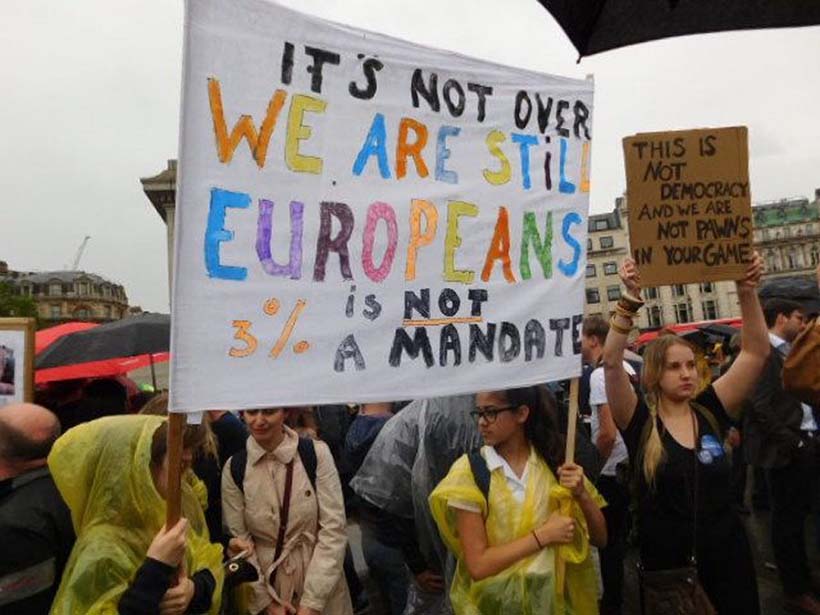 IT'S NOT OVER
WE ARE STiLL
EUROPEANS
3% is NOT
A MANDATE
THIS IS
NOT
DEMOCRACY
AND WE ARE
NOT PAWNS
IN YOUR GAME